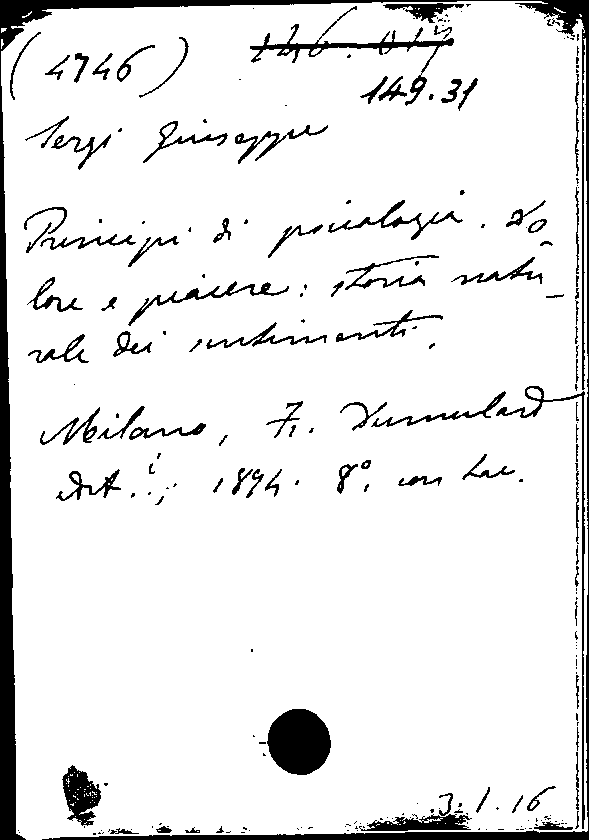 (4746) 146.017
149.31
Sergi Giuseppe
Principi di psicologia. Do-
lore e piacere: storia natu-
rale dei sentimenti.
Milano, Fr. Dumolard
edit.i, 1894. 8º, con tav.
3.1.16